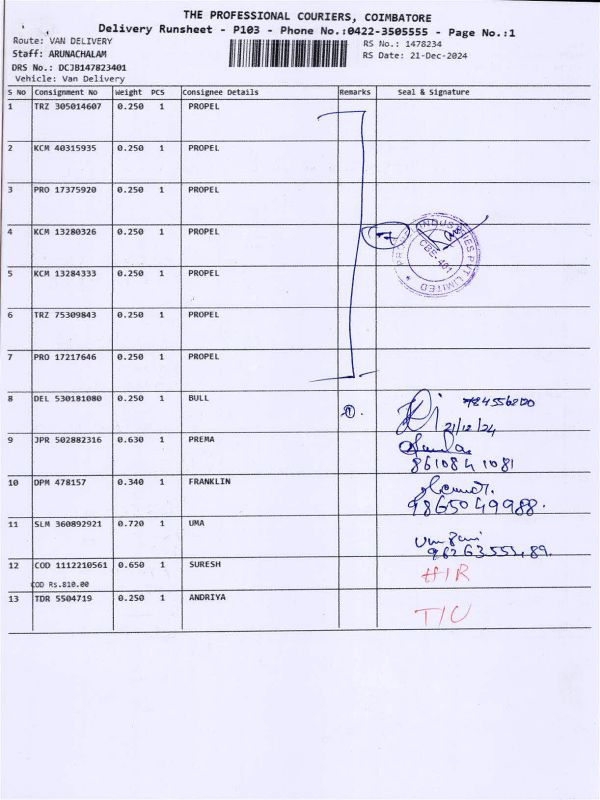 THE PROFESSIONAL COURIERS, COIMBATORE
Delivery Runsheet - P103 - Phone No.:0422-3505555 - Page No.:1
Route: VAN DELIVERY
RS No.: 1478234
Staff: ARUNACHALAM
RS Date: 21-Dec-2024
DRS No.: DCJB147823401
Vehicle: Van Delivery
S No Consignment No Weight PCS Consignee Details Remarks Seal & Signature
1 TRZ 305014607 0.250 1 PROPEL
2 KCM 40315935 0.250 1 PROPEL
3 PRO 17375920 0.250 1 PROPEL
4 KCM 13280326 0.250 1 PROPEL
7
INDUSTRIES PVT LIMITED
5 KCM 13284333 0.250 1 PROPEL
6 TRZ 75309843 0.250 1 PROPEL
7 PRO 17217646 0.250 1 PROPEL
8 DEL 530181080 0.250 1 BULL 1
21/12/24
9 JPR 502882316 0.630 1 PREMA
8610841081
10 DPM 478157 0.340 1 FRANKLIN
9865049988.
11 SLM 360892921 0.720 1 UMA
12 COD 1112210561 0.650 1 SURESH
COD Rs.810.00
13 TDR 5504719 0.250 1 ANDRIYA